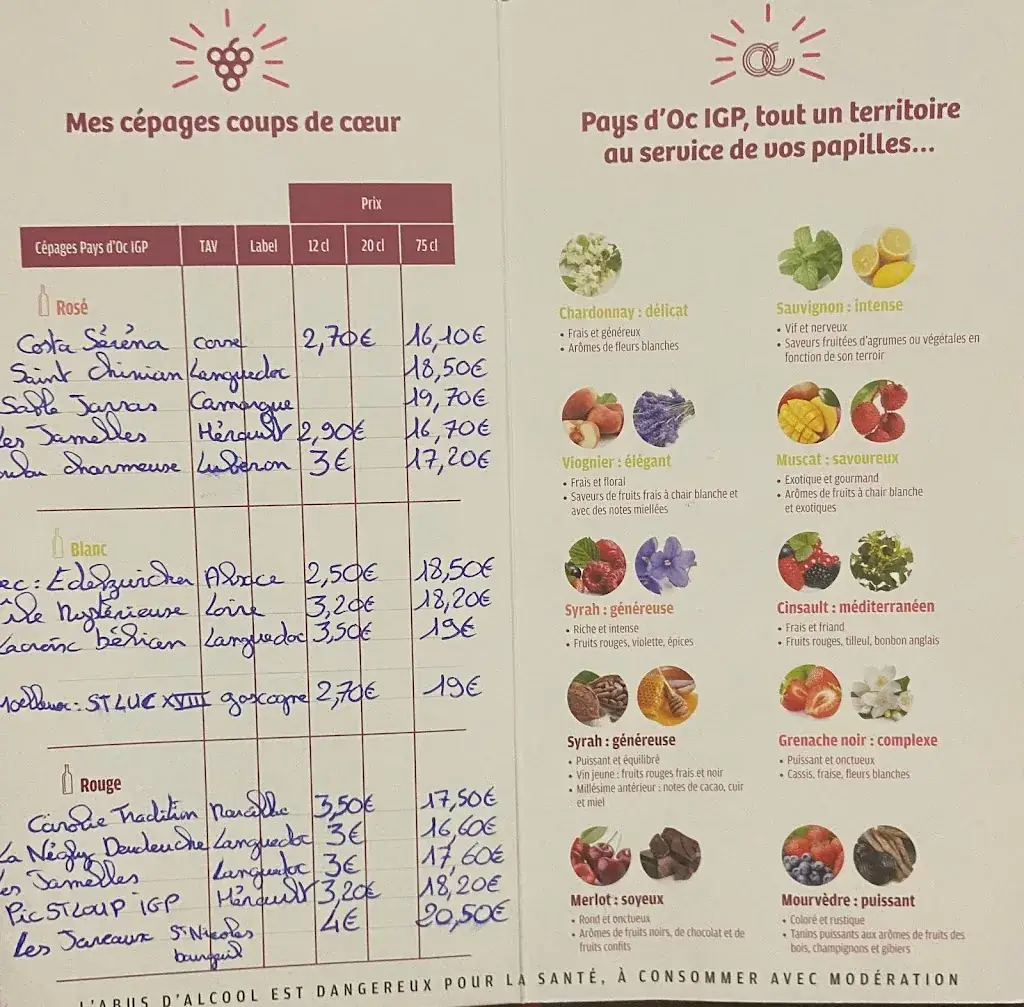 Mes cépages coups de cœur
Prix
Cépages Pays d'Oc IGP TAV Label 12 cl 20 cl 75 cl
Rosé
Costa Séréna corse 2,70€ 16,10€
Saint Chinian Languedoc 18,50€
Sable Jarras Camargue 19,70€
es Jamelles Hérault 2,90€ 16,70€
charmeuse Luberon 3€ 17,20€
Blanc
ec: Edelzwicker Alsace 2,50€ 18,50€
île Mystérieuse Loire 3,20€ 18,20€
Lacroix Languedoc 3,50€ 19€
moelleux: ST LUC XVIII gascogne 2,70€ 19€
Rouge
Tradition 3,50€ 17,50€
La Négly Languedoc 3€ 16,60€
es Jamelles Languedoc 3€ 17,60€
Pic ST LOUP IGP Hérault 3,20€ 18,20€
Les St Nicolas 4€ 20,50€
bourgueil
Pays d'Oc IGP, tout un territoire
au service de vos papilles...
Chardonnay : délicat
• Frais et généreux
• Arômes de fleurs blanches
Sauvignon : intense
• Vif et nerveux
• Saveurs fruitées d'agrumes ou végétales en
fonction de son terroir
Viognier : élégant
• Frais et floral
• Saveurs de fruits frais à chair blanche et
avec des notes miellées
Muscat : savoureux
• Exotique et gourmand
• Arômes de fruits à chair blanche
et exotiques
Syrah : généreuse
• Riche et intense
• Fruits rouges, violette, épices
Cinsault : méditerranéen
• Frais et friand
• Fruits rouges, tilleul, bonbon anglais
Syrah : généreuse
• Puissant et équilibré
• Vin jeune : fruits rouges frais et noir
• Millésime antérieur : notes de cacao, cuir
et miel
Grenache noir : complexe
• Puissant et onctueux
• Cassis, fraise, fleurs blanches
Merlot : soyeux
• Rond et onctueux
• Arômes de fruits noirs, de chocolat et de
fruits confits
Mourvèdre : puissant
• Coloré et rustique
• Tanins puissants aux arômes de fruits des
bois, champignons et gibiers
L'ABUS D'ALCOOL EST DANGEREUX POUR LA SANTÉ, À CONSOMMER AVEC MODÉRATION